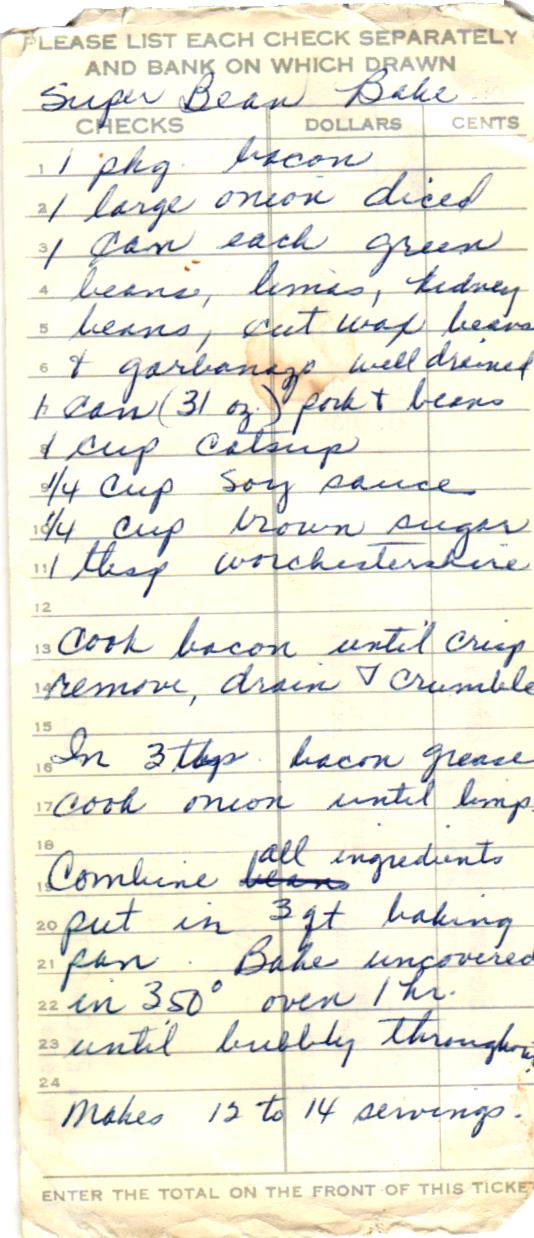 PLEASE LIST EACH CHECK SEPARATELY
AND BANK ON WHICH DRAWN
Super Bean Bake
CHECKS DOLLARS CENTS
1 1 pkg. bacon
2 1 large onion diced
3 1 can each green
4 beans, limas, kidney
5 beans, cut wax beans
6 & garbanazo well drained
1 can (31 oz.) pork & beans
8 1 cup catsup
9 1/4 cup soy sauce
10 1/4 cup brown sugar
11 1 tbsp worchestershire
12
13 Cook bacon until crisp
14 remove, drain & crumble
15
16 In 3 tbsp. bacon grease
17 cook onion until limp.
18
all ingredients
19 Combine beans
20 put in 3 qt baking
21 pan. Bake uncovered
22 in 350° oven 1 hr.
23 until bubbly throughout.
24
Makes 12 to 14 servings.
ENTER THE TOTAL ON THE FRONT OF THIS TICKE